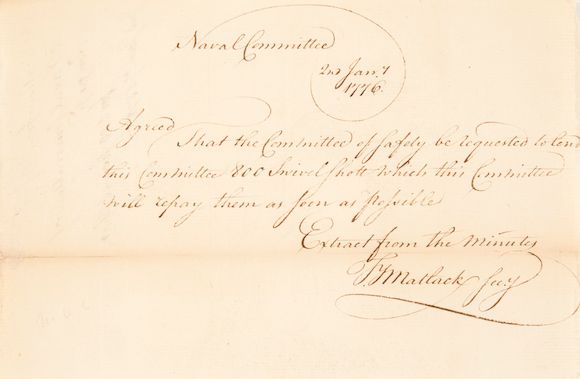 Naval Committee
2d Jany
1776.
Agreed
That the Committee of Safety be requested to lend
this Committee 800 Swivel Shott which this Committee
will repay them as soon as possible
Extract from the minutes
Ty Matlack Secy